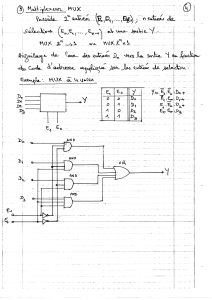 ③ Multiplexeur MUX
Possède 2ⁿ entrées (D₀, D₁, ..., ), n entrées de
sélections (E₀, E₁, ..., Eₙ₋₁) et une sortie Y.
MUX 2ⁿ→1 ou MUX 2ⁿx1
Aiguillage de l'une des entrées Dₓ vers la sortie Y en fonction
du Code d'adresse appliqué sur les entrées de sélection
Exemple: MUX à 4 voies
D₀
D₁
D₂
D₃
Y
E₁ E₀
E₁ E₀ Y
0 0 D₀
0 1 D₁
1 0 D₂
1 1 D₃
D₀
AND
D₁
AND
OR
Y
D₂
AND
D₃
AND
E₀
E₁